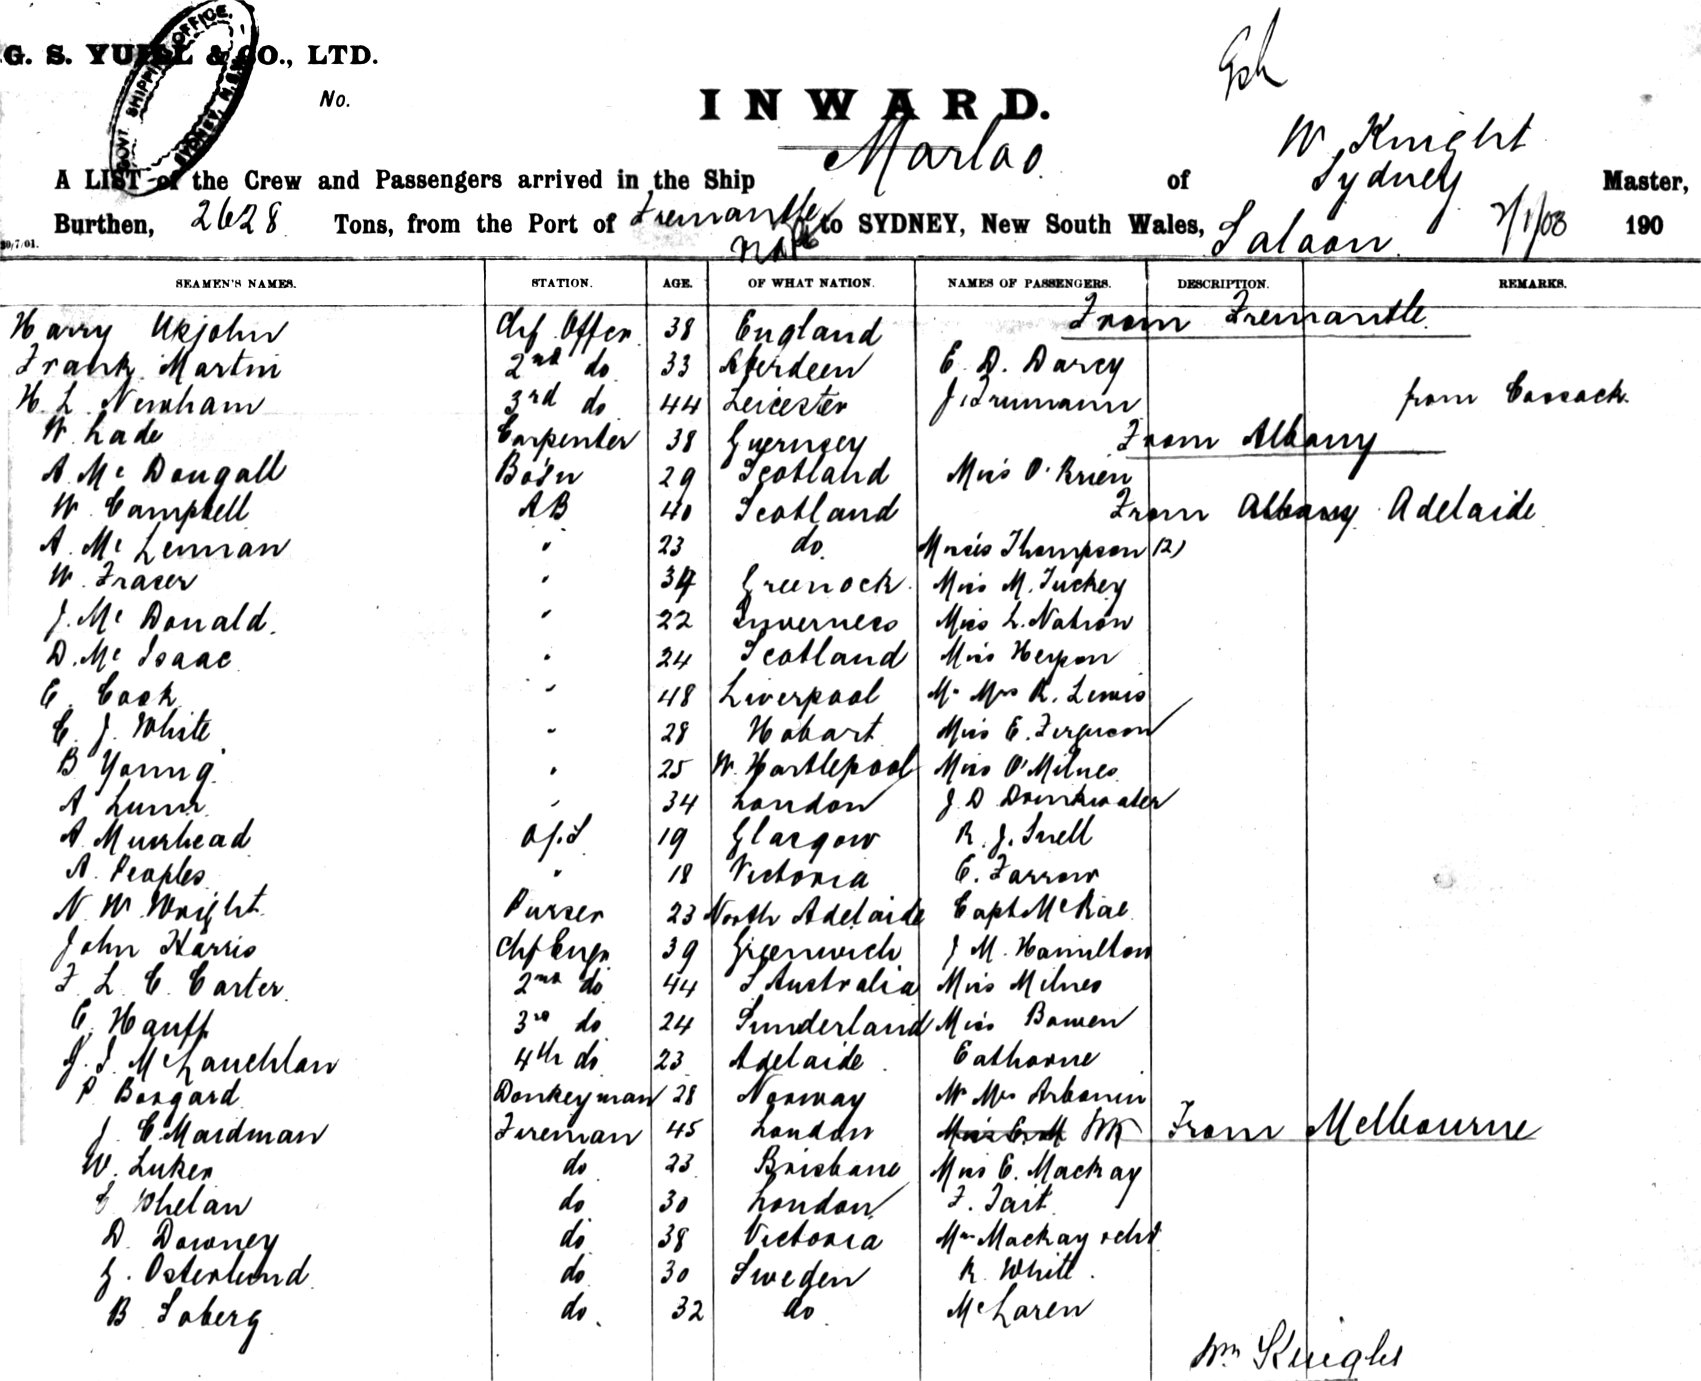 G. S. YUILL & CO., LTD.
GOVT SHIPPING OFFICE, SYDNEY, N.S.W.
No.
INWARD.
W Knight
A LIST of the Crew and Passengers arrived in the Ship Marloo of Sydney Master,
Burthen, 2628 Tons, from the Port of Fremantle to SYDNEY, New South Wales, 7/1/08 190
Saloon
30/7/01.
SEAMEN'S NAMES. STATION. AGE. OF WHAT NATION. NAMES OF PASSENGERS. DESCRIPTION. REMARKS.
Harry Upjohn Chf Offcr 38 England From Fremantle
Frank Martin 2nd do 33 Aberdeen E. D. Darcy
H. L. Newham 3rd do 44 Leicester J. Trumann from Cossack
W. Lade Carpenter 38 Guernsey From Albany
A. Mc Dougall Bo'sn 29 Scotland Miss O'Brien
W. Campbell AB 40 Scotland From Albany Adelaide
A. Mc Lennan " 23 do. Misses Thompson (2)
W. Fraser " 34 Greenock Miss M. Tuckey
J. Mc Donald " 22 Inverness Miss L. Nation
D. Mc Isaac " 24 Scotland Miss Heyson
C. Cook " 48 Liverpool Mr Mrs R. Lewis
C. J. White " 28 Hobart Miss E. Ferguson
B Young " 25 W. Hartlepool Miss O'Milnes
A Lunn " 34 London J. D Drinkwater
A. Muirhead O/S 19 Glasgow R. J. Snell
A. Peoples " 18 Victoria E. Farrow
N. W. Wright Purser 23 North Adelaide Capt McRae
John Harris Chf Engr 39 Greenwich J M. Hamilton
F. L. C. Carter 2nd do 44 S Australia Miss Milnes
C. Hauff 3rd do 24 Sunderland Miss Bowen
J. McLauchlan 4th do 23 Adelaide Eathorne
P Bongard Donkeyman 28 Norway Mr Mrs Arbonin
J. C. Maidman Fireman 45 London From Melbourne
W. Luker do 23 Brisbane Miss E. Mackay
Whelan do 30 London F. Tait
D. Downey do 38 Victoria Mrs Mackay &chd
Osterlund do 30 Sweden R. White
B Soberg do. 32 do McLaren
Wm Knight